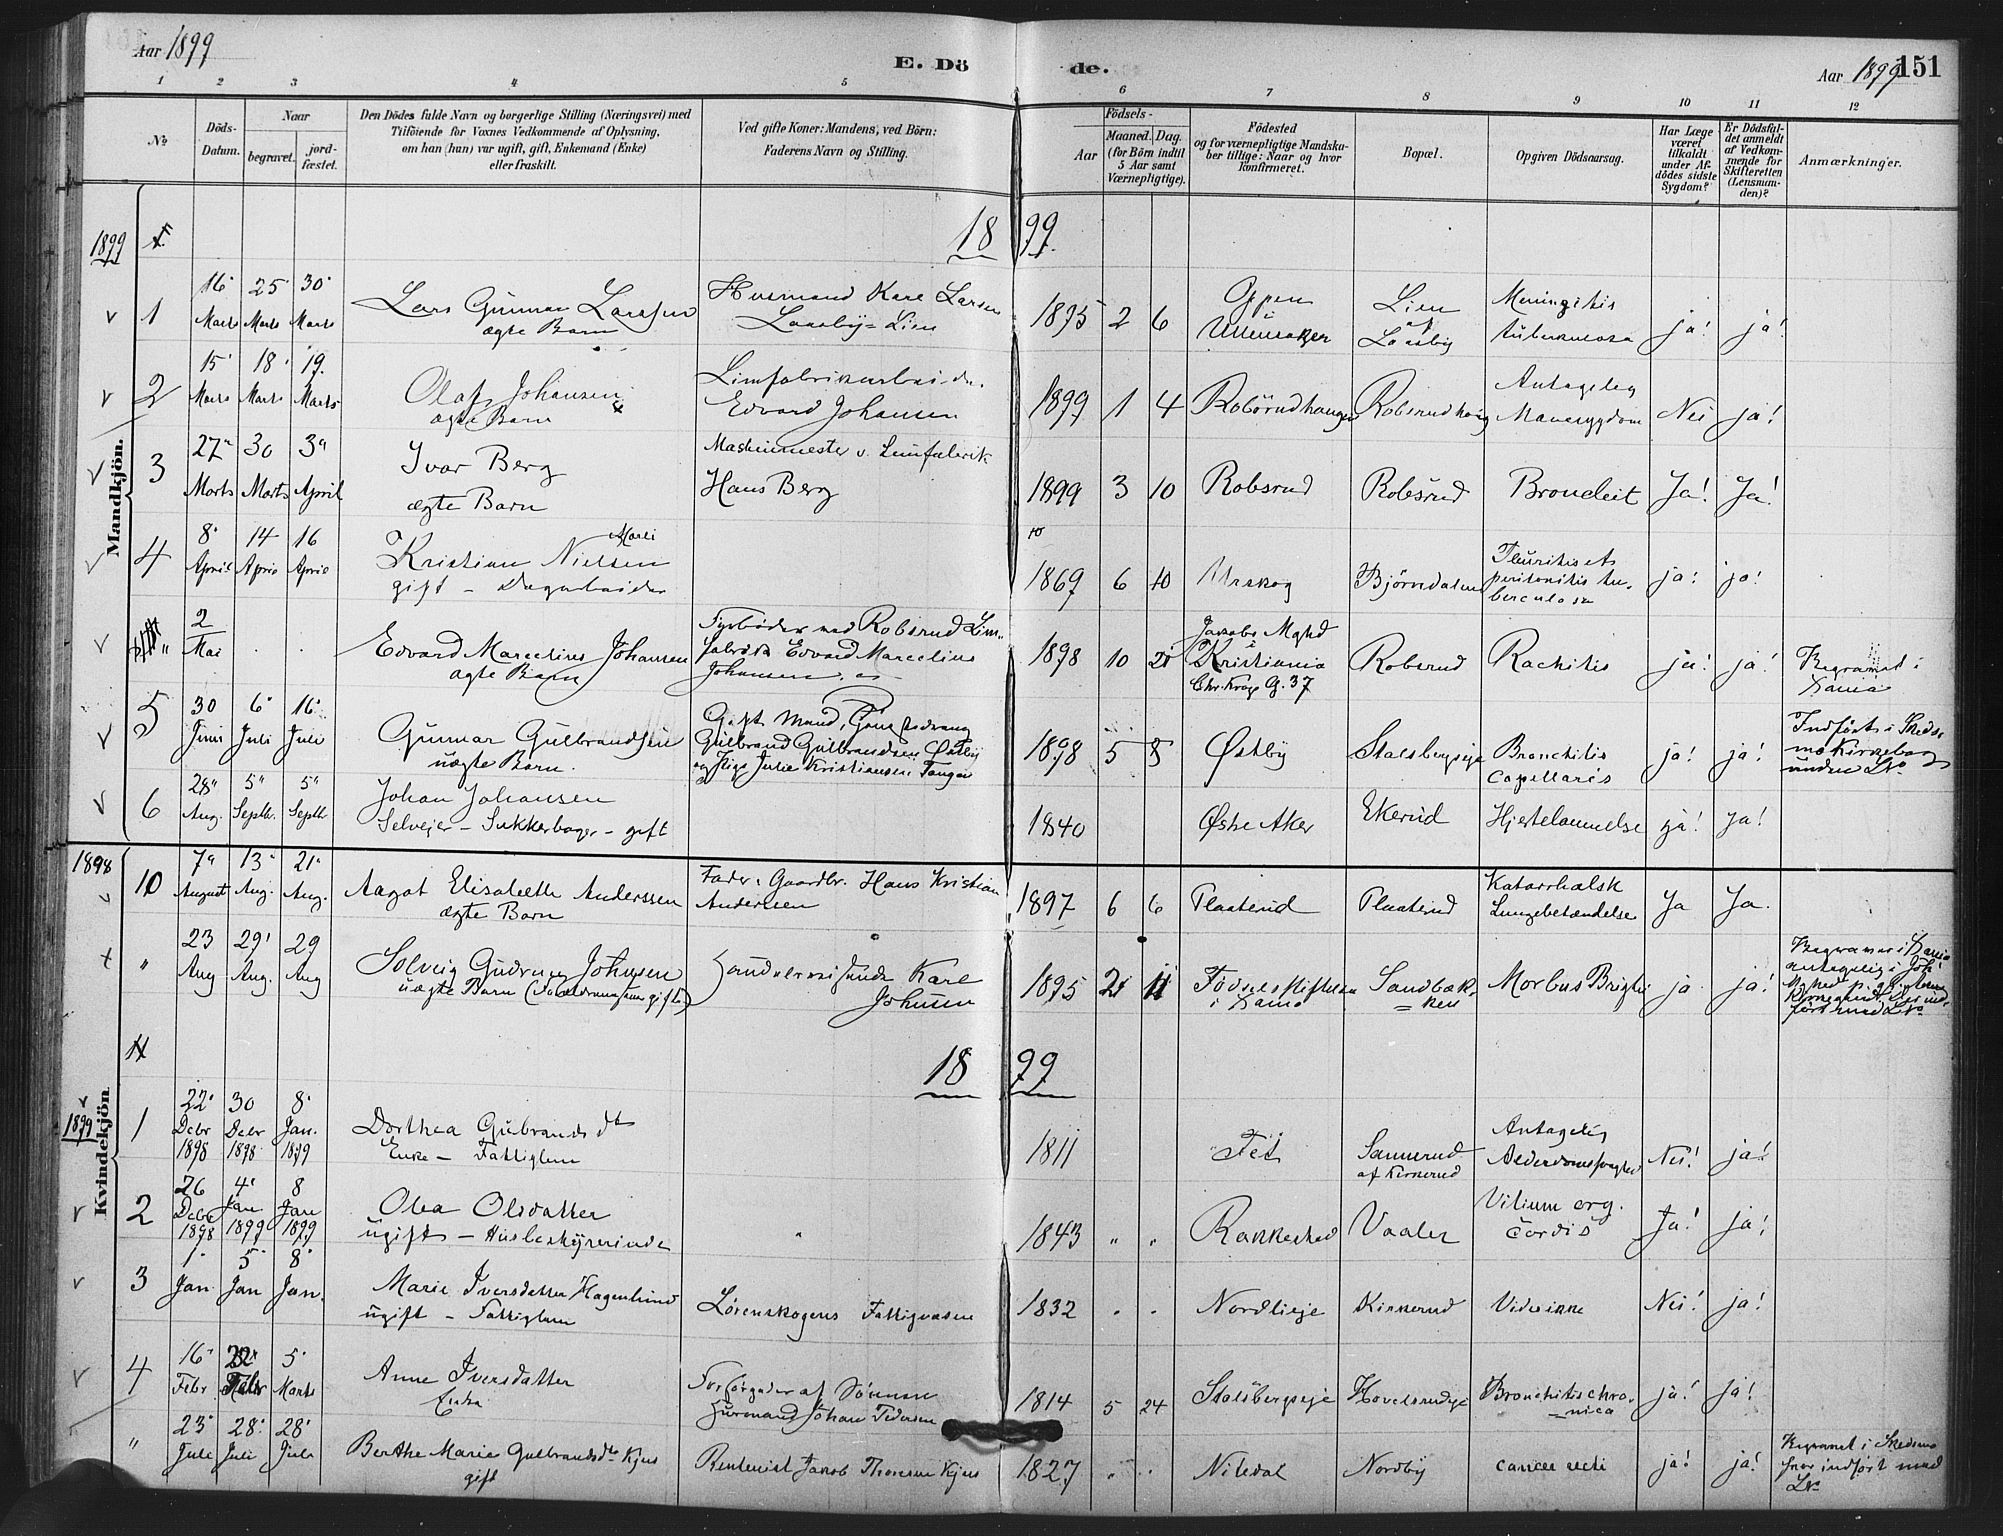 Aar 1899
E. Dö de.
Aar 1899 151
1 2 3 4 5 6 7 8 9 10 11 12
No
Döds-
Datum.
Naar
begravet.
jord-
fæstet.
Den Dödes fulde Navn og borgerlige Stilling (Næringsvei) med
Tilföiende for Voxnes Vedkommende af Oplysning,
om han (hun) var ugift, gift, Enkemand (Enke)
eller fraskilt.
Ved gifte Koner: Mandens, ved Börn:
Faderens Navn og Stilling.
Födsels-
Aar
Maaned. Dag.
(for Börn indtil
5 Aar samt
Værnepligtige).
Födested
og for værnepligtige Mandska-
ber tillige: Naar og hvor
konfirmeret.
Bopæl.
Opgiven Dödsaarsag.
Har Læge
været
tilkaldt
under Af-
dödes sidste
Sygdom?
Er Dödsfal-
det anmeldt
af Vedkom-
mende for
Skifteretten
(Lensman-
den)?
Anmærkninger.
Mandkjön.
1899
1899
1
16 Marts 25 Marts 30 Marts
Lars Gunnar Larssen
ægte Barn
Husmand Kare Larsen
Laasby-Lien
1895 2 6
Oppen
i
Ullensaker
Lien
af
Laasby
Meningitis
tuberkulosa
ja! ja!
2
15 Marts 18 Marts 19. Marts
Olaf Johansen
ægte Barn
Limfabrikarbeider
Edvard Johansen
1899 1 4
Robsrudhaugen
Robsrudhaug
Antagelig
Mavesygdom
Nei ja!
3
27 Marts 30 Marts 3 April
Ivar Berg
ægte Barn
Maskinmester v. Limfabrik
Hans Berg
1899 3 10
Robsrud
Robsrud
Bronchit
Ja! Ja!
4
8 April 14 April 16 April
Kristian Nielsen Moeli
gift - Dagarbeider
1869 6 10
Urskog
Björndalen
Pleuritis et
peritonitis tu-
berculosa
ja! ja!
2 Mai
Edvard Marcelius Johansen
ægte Barn
Fyrböder ved Robsrud Lim-
fabrik Edvard Marcelius
Johansen
1898 10 21
Jakobs Mghd
i
Kristiania
Chr. Krogs G. 37
Robsrud
Rachitis
ja! ja!
Begravet i
Xania
5
30 Juni 6 Juli 16 Juli
Gunnar Gulbrandsen
uægte Barn.
Gift Mand, Gaardsdreng
Gulbrand Gulbrandsen Østby
og Pige Julie Kristiansen Tangen
1898 5 8
Østby
Stalsbergseje
Bronchitis
Capellaris
ja! ja!
Indført i Skeds-
mo Kirkebog
under No
6
28 Aug. 5 Septb. 5 Septb
Johan Johansen
Selvejer - Sukkerbager - gift
1840
Østre Aker
Ekerud
Hjertelammelse
ja! Ja!
1898
10
7 August 13 Aug. 21 Aug.
Aagot Elisabeth Anderssen
ægte Barn
Fader: Gaardbr. Hans Kristian
Anderssen
1897 6 6
Plaaterud
Plaaterud
Katarrhalsk
Lungebetændelse
Ja Ja.
23 Aug 29 Aug. 29 Aug
Solveig Gudrun Johnsen
uægte Barn (Forældrene senere gifte)
Handelsreisende Karl
Johnsen
1895 21 11
Födselsstiftelsen
i Xania
Sandbæk-
ken
Morbus Brighti
ja ja!
Kvindekjön
1899
1899
1
22 Debr 1898 30 Debr 1898 8 Jan. 1899
Dorthea Gulbrandsdt
Enke - Fattiglem
1811
Fet
Sannerud
af Kirkerud
Antagelig
Alderdomssvaghed
Nei! ja!
2
26 Debr 1898 4 Jan 1899 8 Jan 1899
Olea Olsdatter
ugift - Husbestyrerinde
1843 " "
Rakkestad
Vaaler
Vitium org.
cordis
Ja! ja!
3
1 Jan. 5 Jan 8 Jan.
Marie Iversdatter Hagenlund
ugift - Fattiglem
Lörenskogens Fattigvæsen
1832
Nordlieje
Kirkerud
Vides ikke
Nei! ja!
4
16 Febr 22 Febr 5 Marts
Anne Iversdatter
Enke
Forsörgedes af Sönnen
Husmand Johan Pedersen
1814 5 24
Stalsbergseje
Hovelsrudeje
Bronchitis chro-
nica
ja! ja!
23 Juli 28 Juli 28 Juli
Berthe Marie Gulbrandsdt Kjus
gift
Rentenist Jakob Thoresen Kjus
1827
Nitedal
Nordby
cancer recti
ja! ja!
Begravet i Skedsmo
hvor indfört med
No